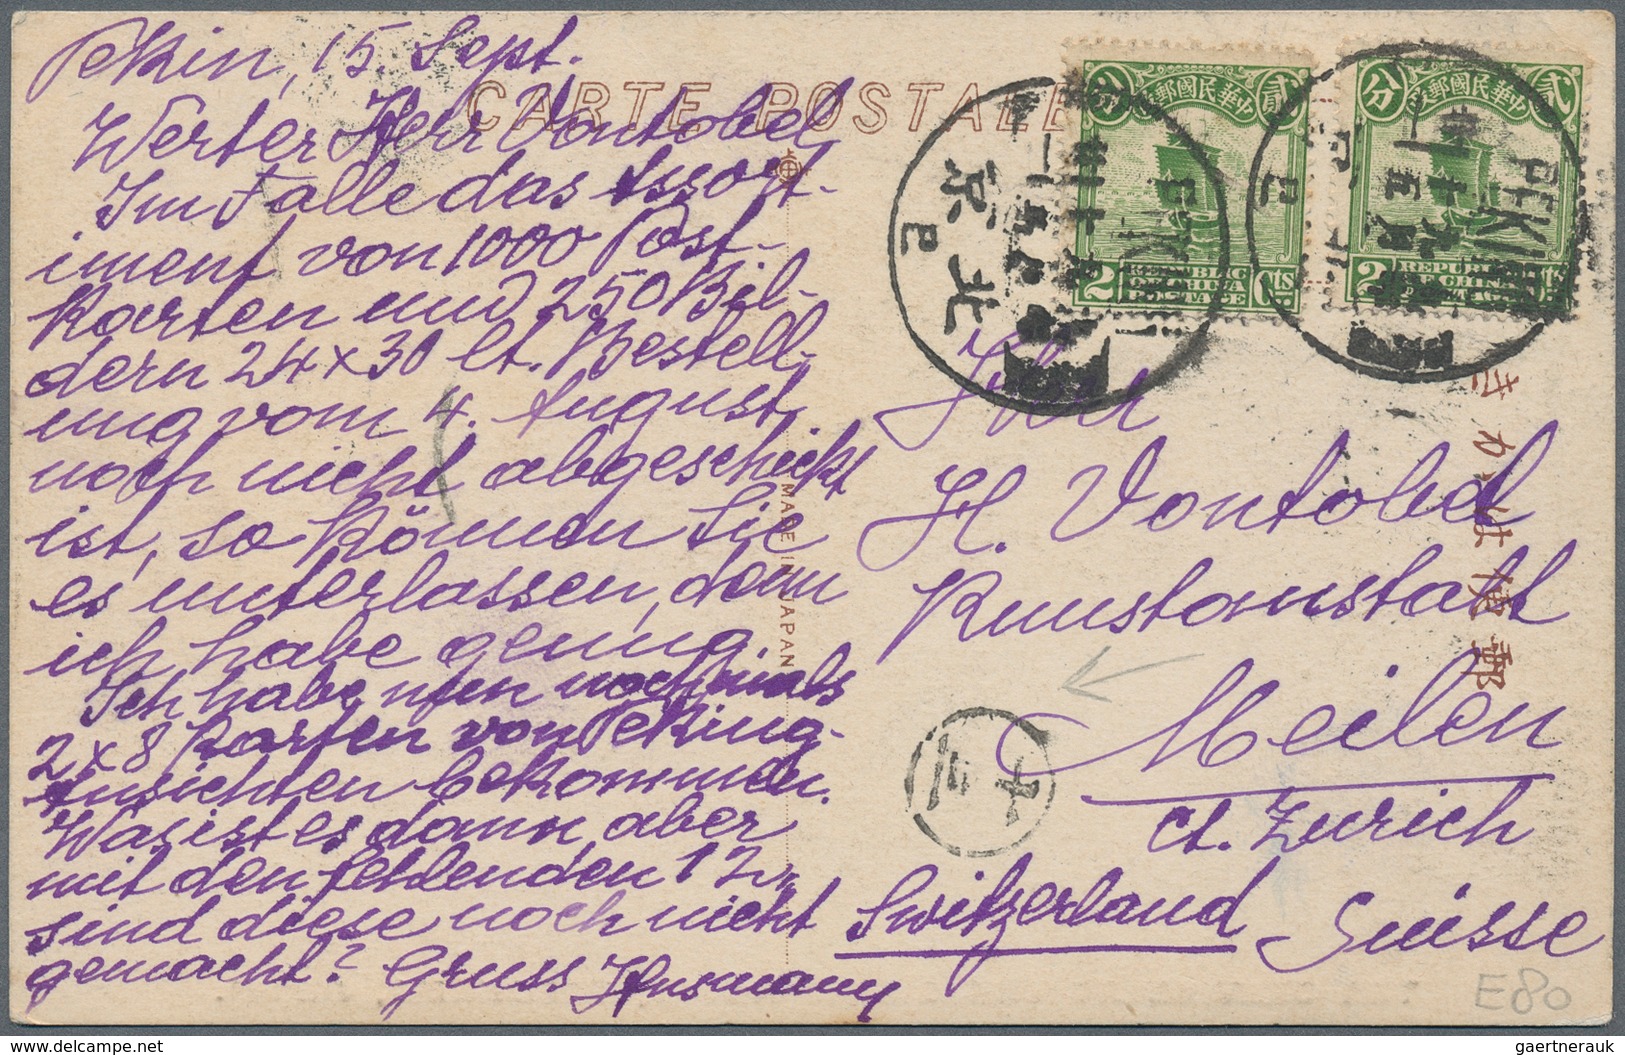 Pekin, 15. Sept.
Werter Herr Vontobel
Im Falle das Assort-
iment von 1000 Post-
Karten und 250 Bil-
dern 24 x 30 lt. Bestell-
ung vom 4. August
noch nicht abgeschickt
ist, so können Sie
es unterlassen, denn
ich habe genug.
Ich habe nun nochmals
2 x 8 Karten von Peking-
Ansichten bekommen.
Was ist es dann aber
mit den fehlenden 12,
sind diese noch nicht
gemacht? Gruss
CARTE POSTALE
MADE IN JAPAN
中華民國郵政
貳 分
REPUBLIC
OF CHINA
POSTAGE
2 Cts
中華民國郵政
貳 分
REPUBLIC
OF CHINA
POSTAGE
2 Cts
北京
PEKING
Herr
H. Vontobel
Kunstanstalt
Meilen
Ct. Zürich
Switzerland Suisse
E80
www.delcampe.net
gaertnerauk